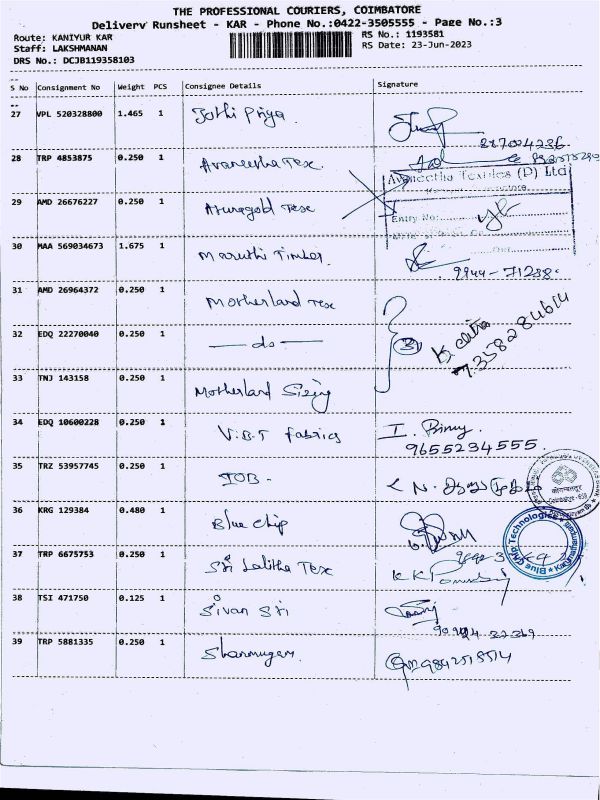 THE PROFESSIONAL COURIERS, COIMBATORE
Delivery Runsheet - KAR - Phone No.:0422-3505555 - Page No.:3
Route: KANIYUR KAR RS No.: 1193581
Staff: LAKSHMANAN RS Date: 23-Jun-2023
DRS No.: DCJB119358103
S No Consignment No Weight PCS Consignee Details Signature
27 VPL 520328800 1.465 1 Jothi Priya
28 TRP 4853875 0.250 1 Avaneetha Tex
Avaneetha Textiles (P) Ltd
29 AMD 26676227 0.250 1 Tex
Entry No:
30 MAA 569034673 1.675 1 Maruthi Timber
9944-71288
31 AMD 26964372 0.250 1 Motherland Tex
32 EDQ 22270040 0.250 1 — do — 3
7358284614
33 TNJ 143158 0.250 1 Motherland Sizing
34 EDQ 10600228 0.250 1 V.B.T Fabrics I. Binny.
9655234555.
35 TRZ 53957745 0.250 1 IOB -
36 KRG 129384 0.480 1 Blue chip
Blue Chip Technologies
37 TRP 6675753 0.250 1 Sri Lalitha Tex
38 TSI 471750 0.125 1 Sivan Sri
39 TRP 5881335 0.250 1 Shanmugam 9842518514